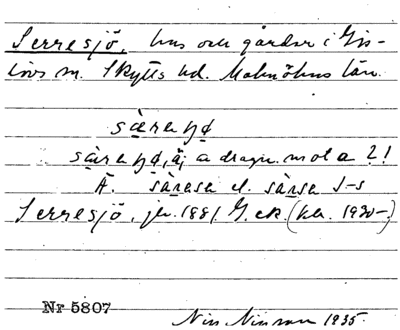 Serresjö, hus och gårdar i Gis-
lövs sn. Skytts hd. Malmöhus län.
sàraŋø
sàraŋø, äj a dragn. mot a 2!
A. sàrasa el. sàrsa S-s
Serresjö, jb. 1881 G.ek (kb. 1930-)
Nr 5807
Nils Nilsson 1935.